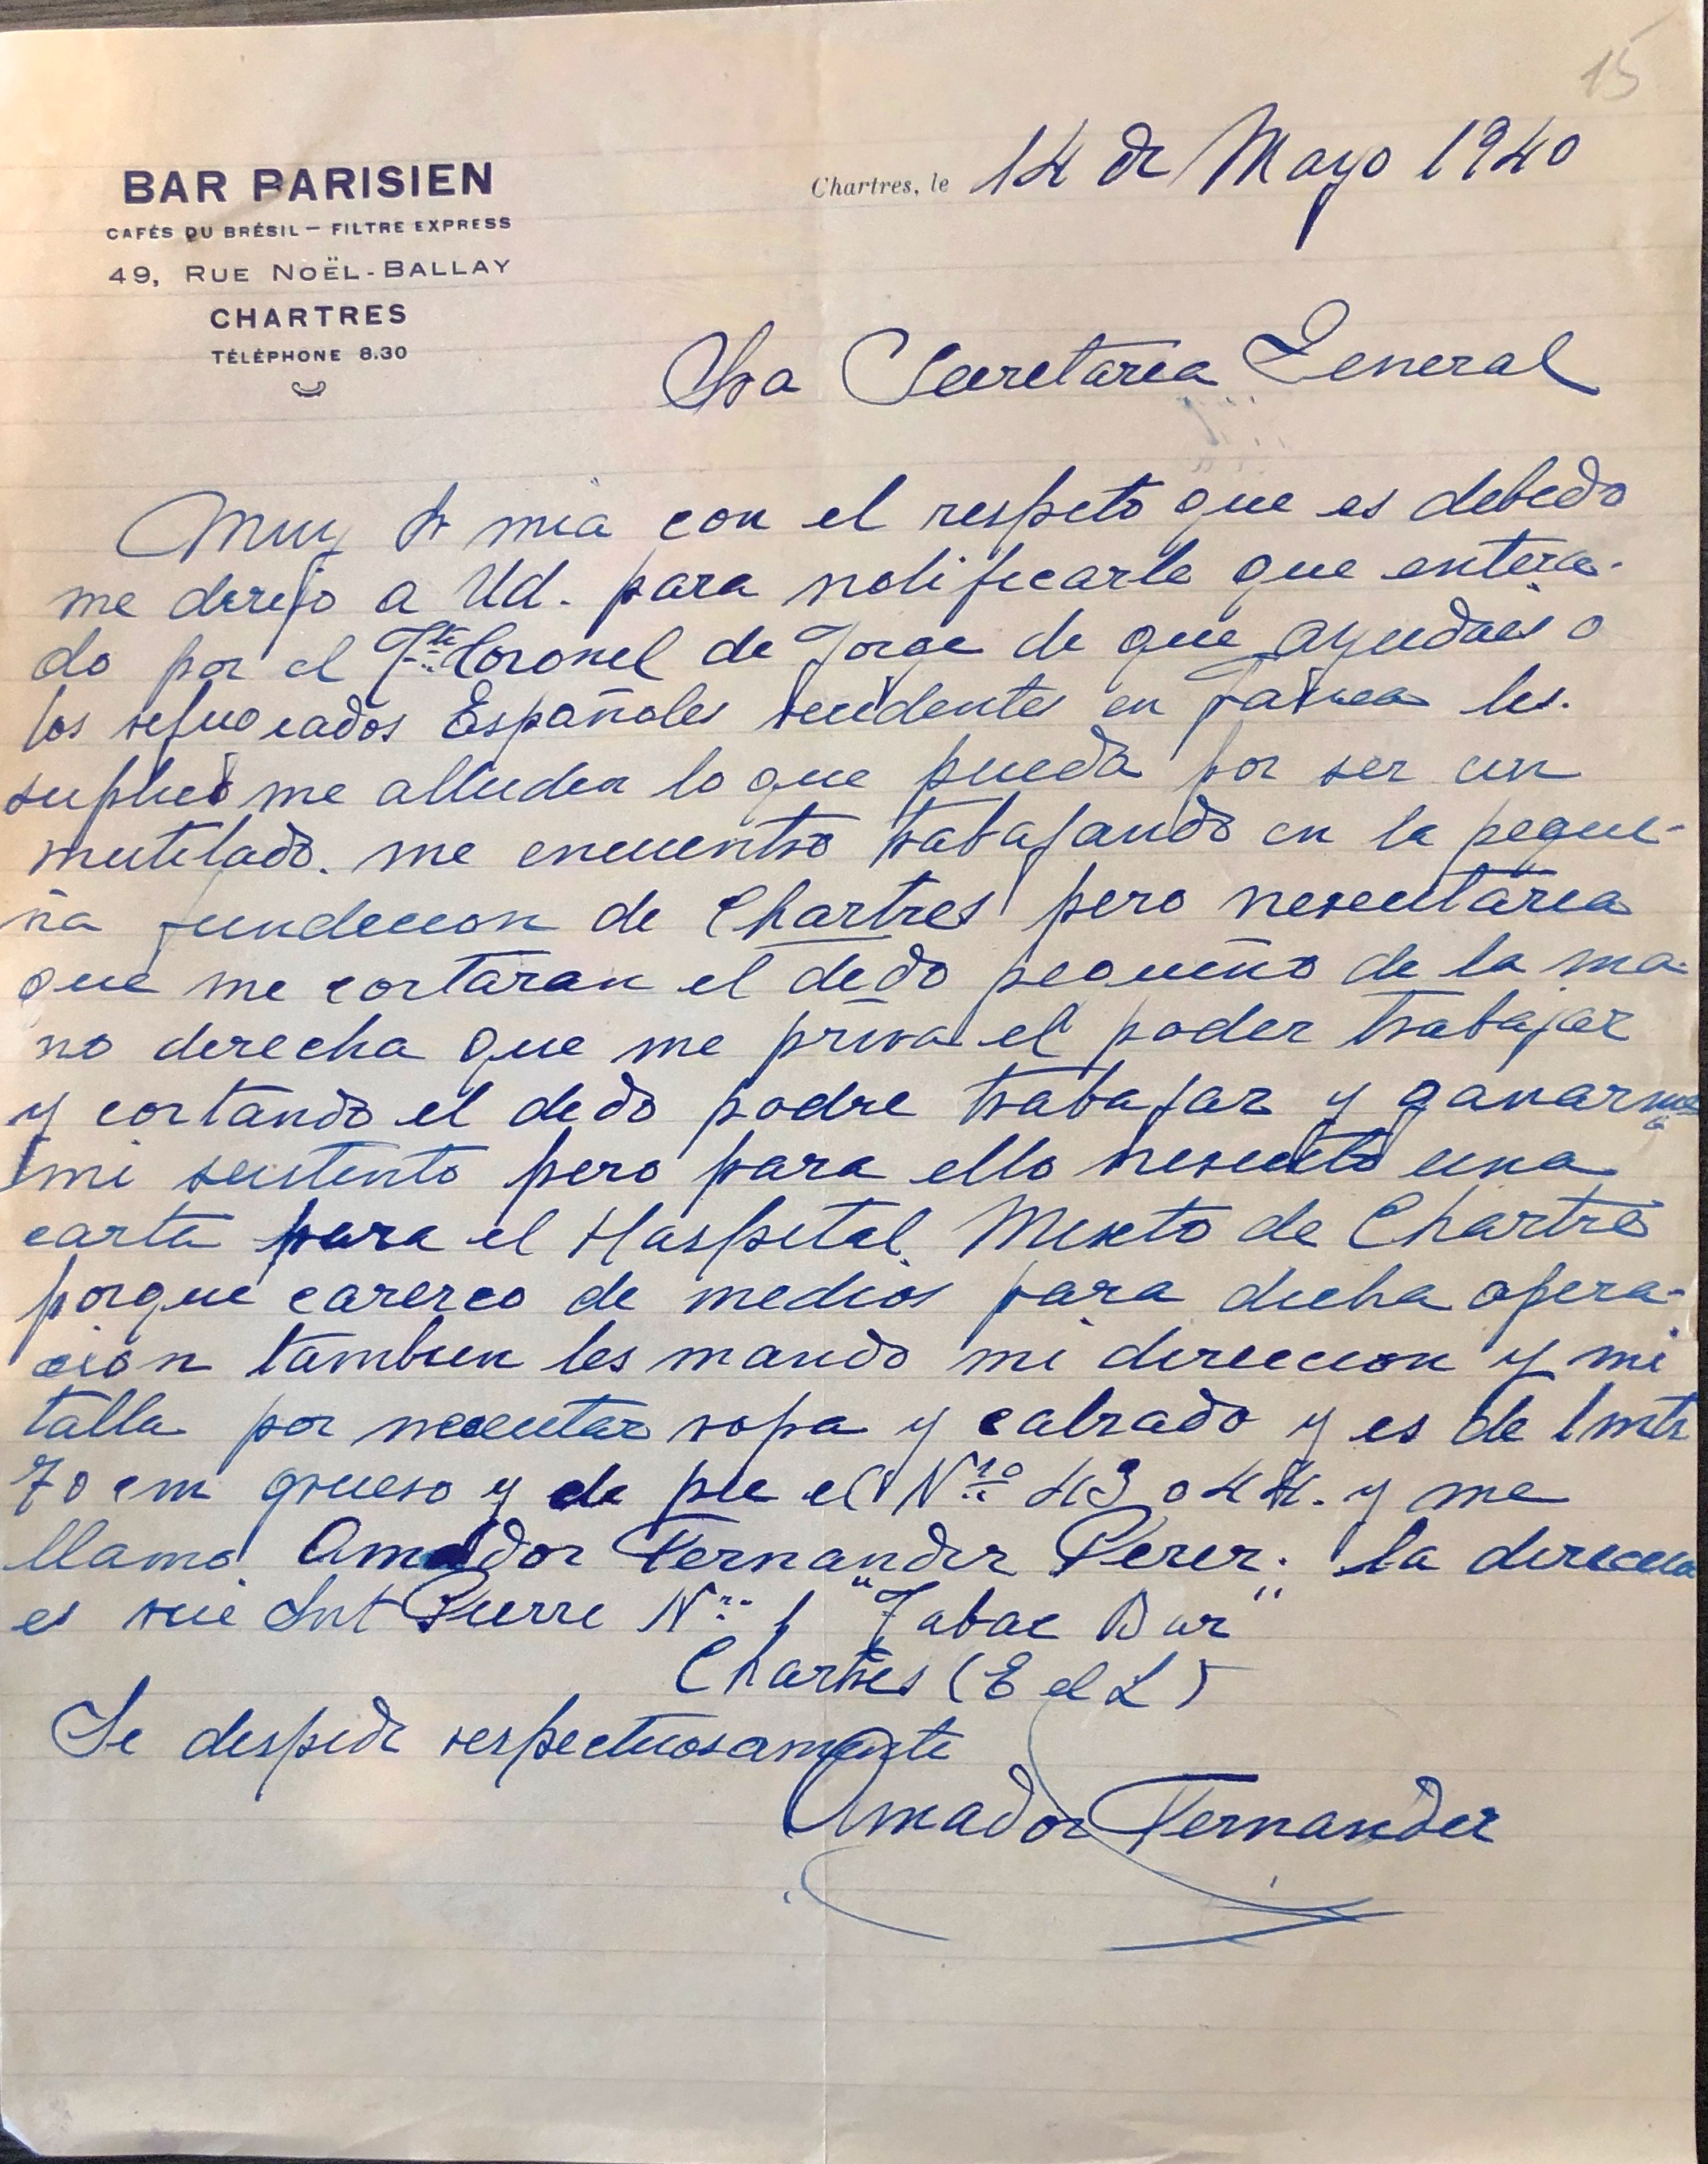 15
BAR PARISIEN
CAFÉS DU BRÉSIL — FILTRE EXPRESS
49, RUE NOËL-BALLAY
CHARTRES
TÉLÉPHONE 8.30
Chartres, le 14 de Mayo 1940
Sra Secretaria General
Muy Sr mia con el respeto que es debido
me dirijo a Ud. para notificarle que entera-
do por el Tte Coronel de Jorge de que ayudais a
los refugiados Españoles residentes en
suplico me alluden lo que pueda por ser un
mutilado. me encuentro trabajando en la peque-
ña fundicion de Chartres pero nesecitaria
que me cortaran el dedo pequeño de la ma-
no derecha que me priva el poder trabajar
y cortando el dedo podre trabajar y ganarme
mi sustento pero para ello nesecito una
carta para el Haspital Mixto de Chartres
porque carezco de medios para dicha opera-
cion tambien les mando mi direccion y mi
talla por nececitar ropa y calzado y es de 1 mtr
70 cm grueso y de pie el Nro 43 o 44. y me
llamo Amador Fernandez Perez. la direccion
es rue Snt Pierre Nro 1 "Tabac Bar"
Chartres (E el L)
Se despide respectuosamente
Amador Fernandez